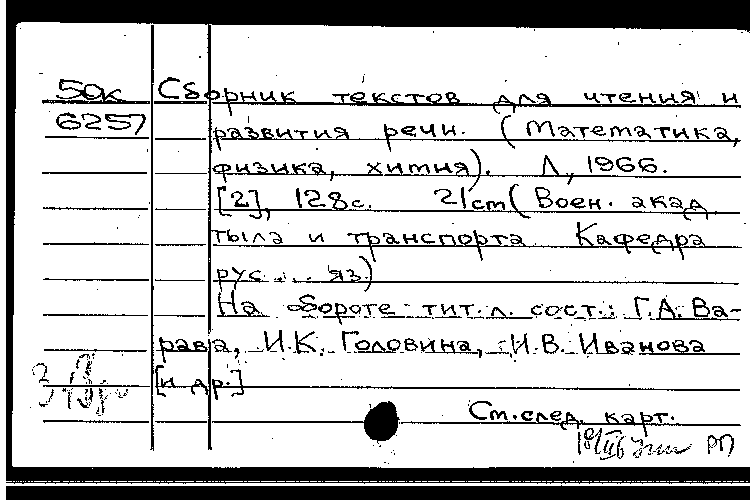 50к Сборник текстов для чтения и
6257 развития речи. (Математика,
физика, химия). Л., 1966.
[2], 128с. 21cm (Воен. акад.
тыла и транспорта Кафедра
рус. яз.)
На обороте тит. л. сост.: Г.А. Ва-
рава, И.К. Головина, И.В. Иванова
[и др.]
См. след. карт.
РП